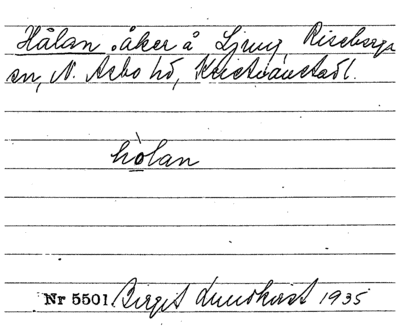 Hålan, åker å Ljung Riseberga
sn, N. Åsbo hd, Kristianstad l.
hòlan
Nr 5501 Birgit Lundkvist 1935